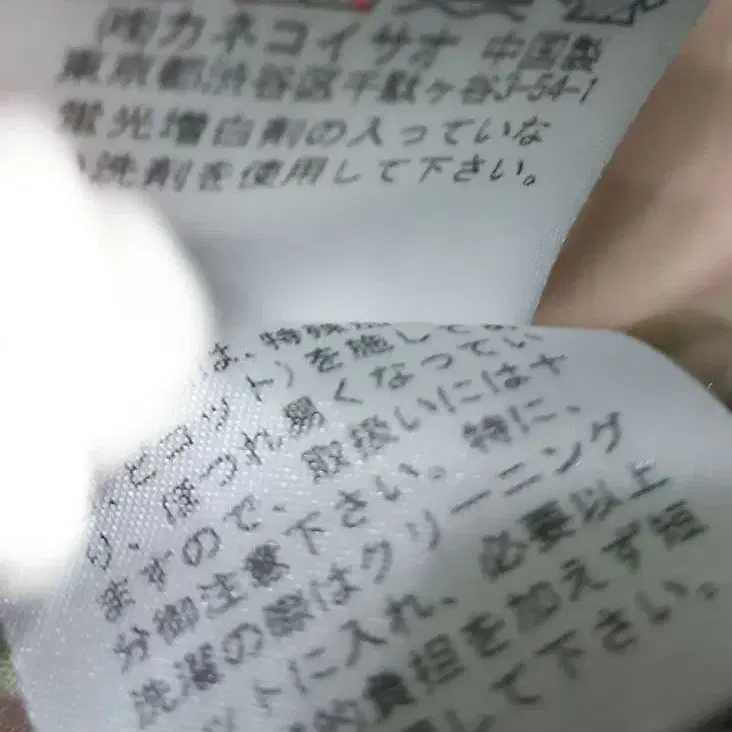 (株)カネコイサオ 中国製
東京都渋谷区千駄ヶ谷3-54-1
蛍光増白剤の入っていな
い洗剤を使用して下さい。
は、特殊
ピコット)を施して
り、ほつれ易くなってい
ますので、取扱いには十
分御注意下さい。特に、
洗濯の際はクリーニング
ットに入れ、必要以上
的負担を加えず短
して下さい。